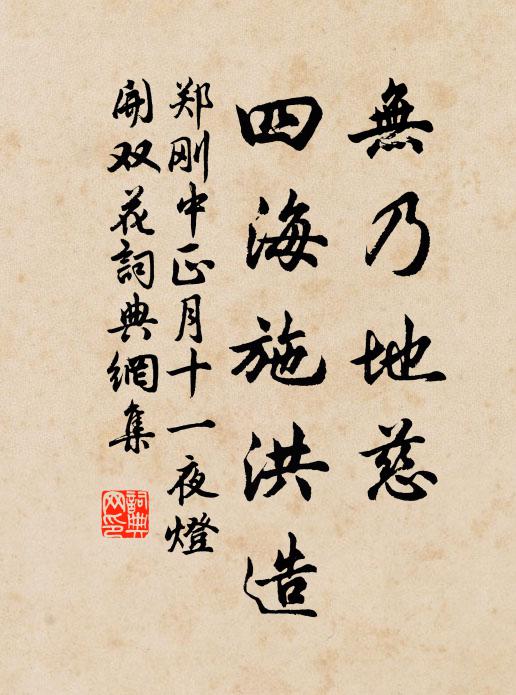 無乃地慈
四海施洪造
郑刚中正月十一夜燈
開双花詞典網集
詞典
网印